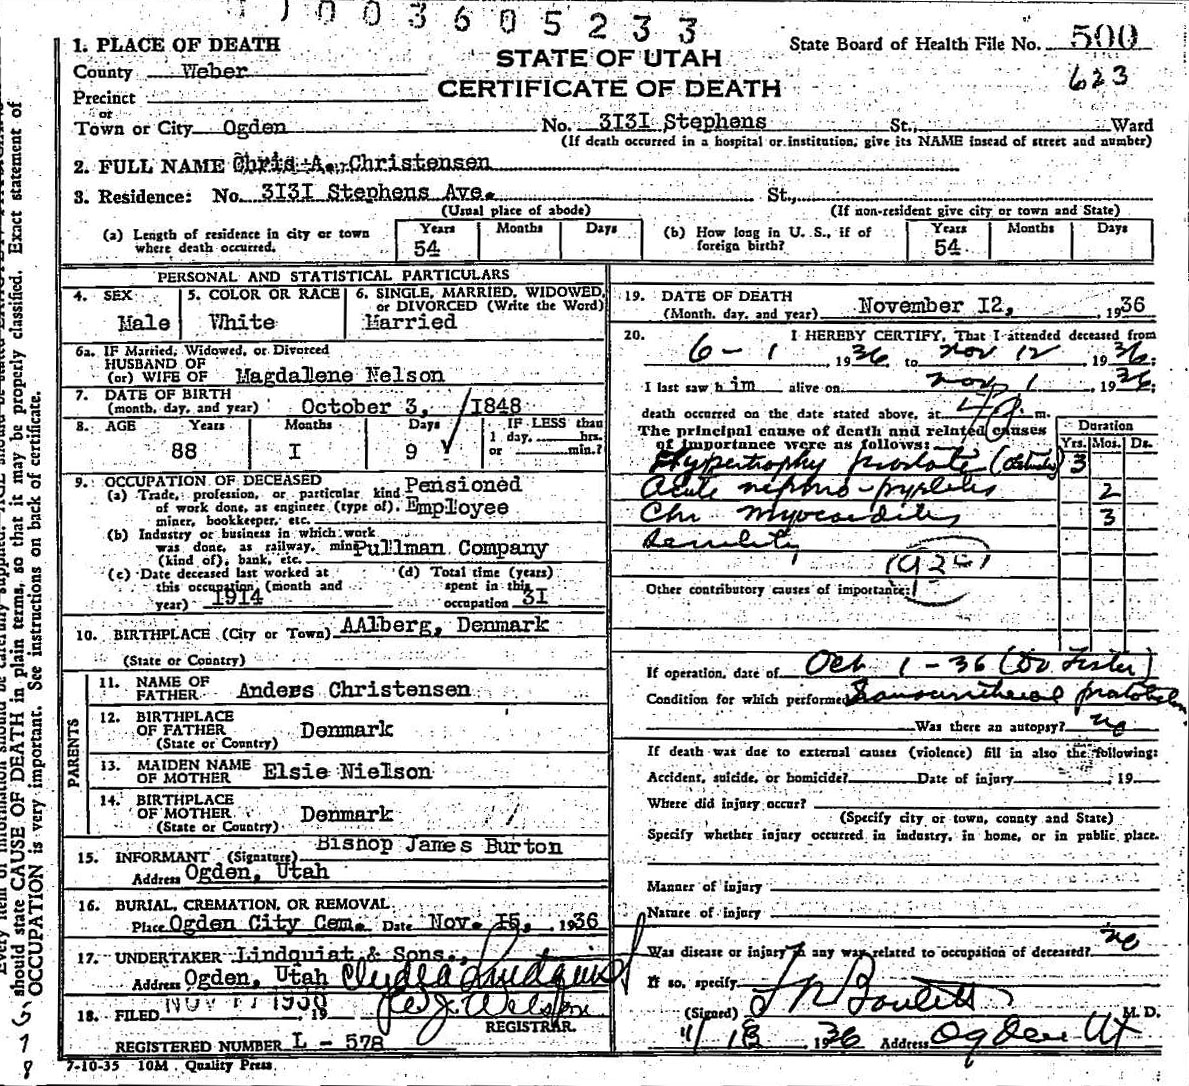 1003605233
1. PLACE OF DEATH
STATE OF UTAH
CERTIFICATE OF DEATH
State Board of Health File No. 500
623
County Weber
Precinct
or
Town or City Ogden No. 3131 Stephens St., Ward
(If death occurred in a hospital or institution, give its NAME insead of street and number)
2. FULL NAME Chris A. Christensen
3. Residence: No. 3131 Stephens Ave. St.,
(Usual place of abode) (If non-resident give city or town and State)
(a) Length of residence in city or town where death occurred. Years 54 Months Days
(b) How long in U. S., if of foreign birth? Years 54 Months Days
PERSONAL AND STATISTICAL PARTICULARS
4. SEX Male
5. COLOR OR RACE White
6. SINGLE, MARRIED, WIDOWED, or DIVORCED (Write the Word) Married
6a. IF Married, Widowed, or Divorced
HUSBAND OF
(or) WIFE OF Magdalene Nelson
7. DATE OF BIRTH
(month, day, and year) October 3, 1848
8. AGE Years 88 Months I Days 9 IF LESS than 1 day, hrs. or min.?
9. OCCUPATION OF DECEASED
(a) Trade, profession, or particular kind of work done, as engineer (type of), miner, bookkeeper, etc. Pensioned Employee
(b) Industry or business in which work was done, as railway, mine (kind of), bank, etc. Pullman Company
(c) Date deceased last worked at this occupation (month and year) 1914
(d) Total time (years) spent in this occupation 31
10. BIRTHPLACE (City or Town) AAlberg, Denmark
(State or Country)
PARENTS
11. NAME OF FATHER Anders Christensen
12. BIRTHPLACE OF FATHER Denmark
(State or Country)
13. MAIDEN NAME OF MOTHER Elsie Nielson
14. BIRTHPLACE OF MOTHER Denmark
(State or Country)
15. INFORMANT (Signature) Bishop James Burton
Address Ogden, Utah
16. BURIAL, CREMATION, OR REMOVAL
Place Ogden City Cem. Date Nov. 15, 1936
17. UNDERTAKER Lindquist & Sons.,
Address Ogden, Utah
18. FILED NOV 19
REGISTRAR.
REGISTERED NUMBER L - 578
7-10-35 10M Quality Press
19. DATE OF DEATH
(Month, day, and year) November 12, 1936
20. I HEREBY CERTIFY, That I attended deceased from
6-1 1936 to Nov 12 1936;
I last saw him alive on Nov 1 1936;
death occurred on the date stated above, at m.
The principal cause of death and related causes of importance were as follows:
Duration
Yrs. Mos. Ds.
Hypertrophy prostate 3
Acute nephro-pyelitis 2
Chr myocarditis 3
Senility
Other contributory causes of importance:
If operation, date of Oct 1-36
Condition for which performed
Was there an autopsy? no
If death was due to external causes (violence) fill in also the following:
Accident, suicide, or homicide? Date of injury , 19
Where did injury occur?
(Specify city or town, county and State)
Specify whether injury occurred in industry, in home, or in public place.
Manner of injury
Nature of injury
Was disease or injury in any way related to occupation of deceased? no
If so, specify
(Signed) M. D.
1936 Address Ogden Ut
should state CAUSE OF DEATH in plain terms, so that it may be properly classified. Exact statement of
OCCUPATION is very important. See instructions on back of certificate.